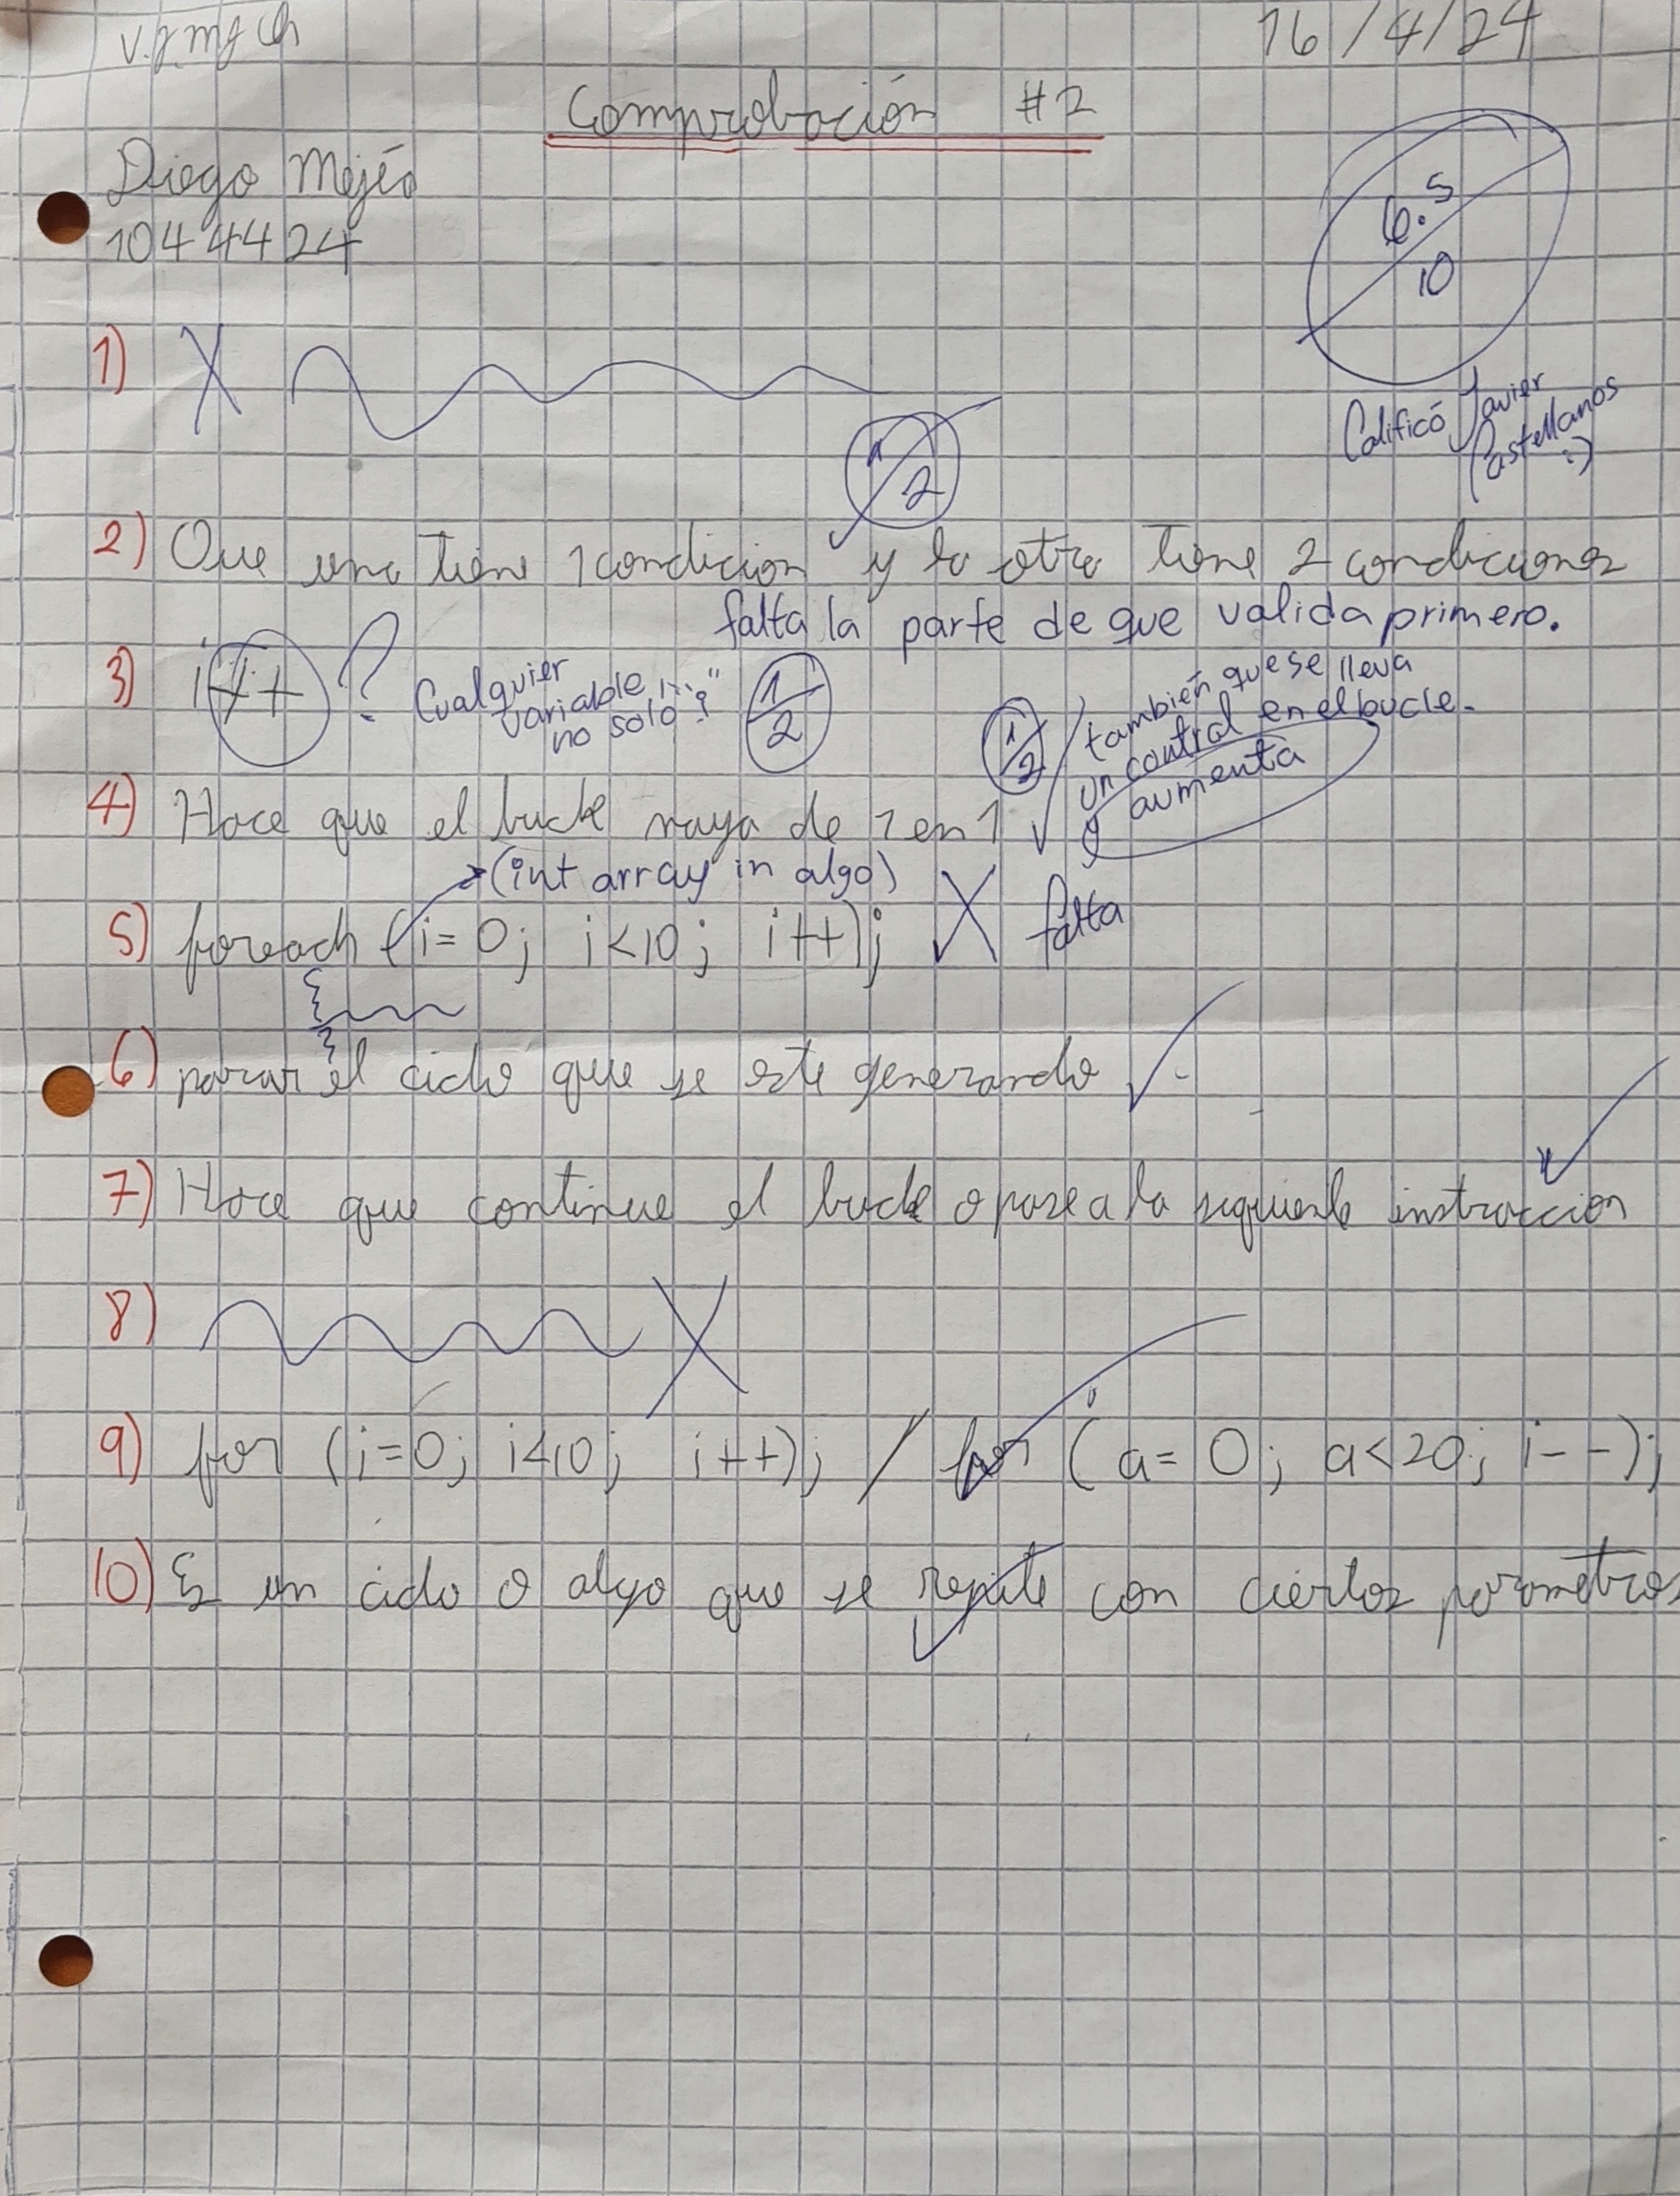 V.J.M.J Ch
16/4/24
Comprobación #2
Diego Mejía
1044424
6.5
10
Calificó Javier
Castellanos
:)
1) X
1/2
2) Que una tiene 1 condicion y la otra tiene 2 condiciones
falta la parte de que valida primero.
3) i++ ? Cualquier
variable
no solo "i" 1/2
1/2 también que se lleva
un control en el bucle.
y aumenta
4) Hace que el bucle vaya de 1 en 1
(int array in algo)
5) foreach (i=0; i<10; i++); X falta
6) parar el ciclo que se este generando
7) Hace que continue el bucle o pase a la siguiente instruccion
8) X
9) for (i=0; i<10; i++); / for (a=0; a<20; i--);
10) Es un ciclo o algo que se repite con ciertos parametros